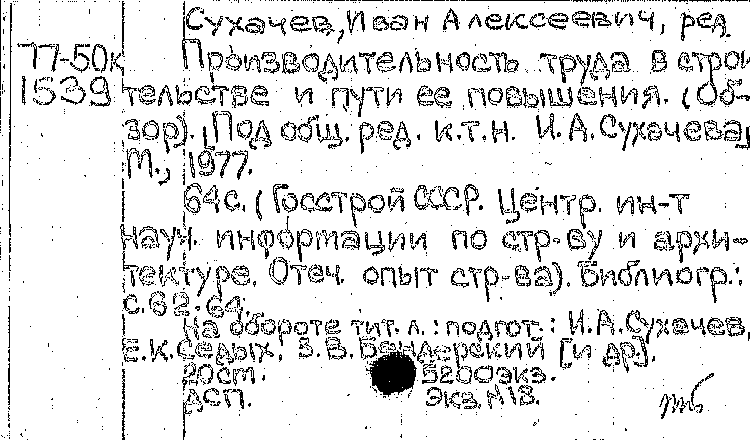 Сухачев, Иван Алексеевич, ред.
77-50к
1539
Производительность труда в строи
тельстве и пути ее повышения. (Об-
зор). Под общ. ред. к.т.н. И.А.Сухачева,
М., 1977.
64с. (Госстрой СССР. Центр. ин-т
науч. информации по стр-ву и архи-
тектуре. Отеч. опыт стр-ва). Библиогр.:
с.62-64.
На обороте тит. л.: подгот.: И.А.Сухачев,
Е.К.Седых, В.В.Бендерский [и др].
20см. 5200экз.
ДСП. Экз.N18.